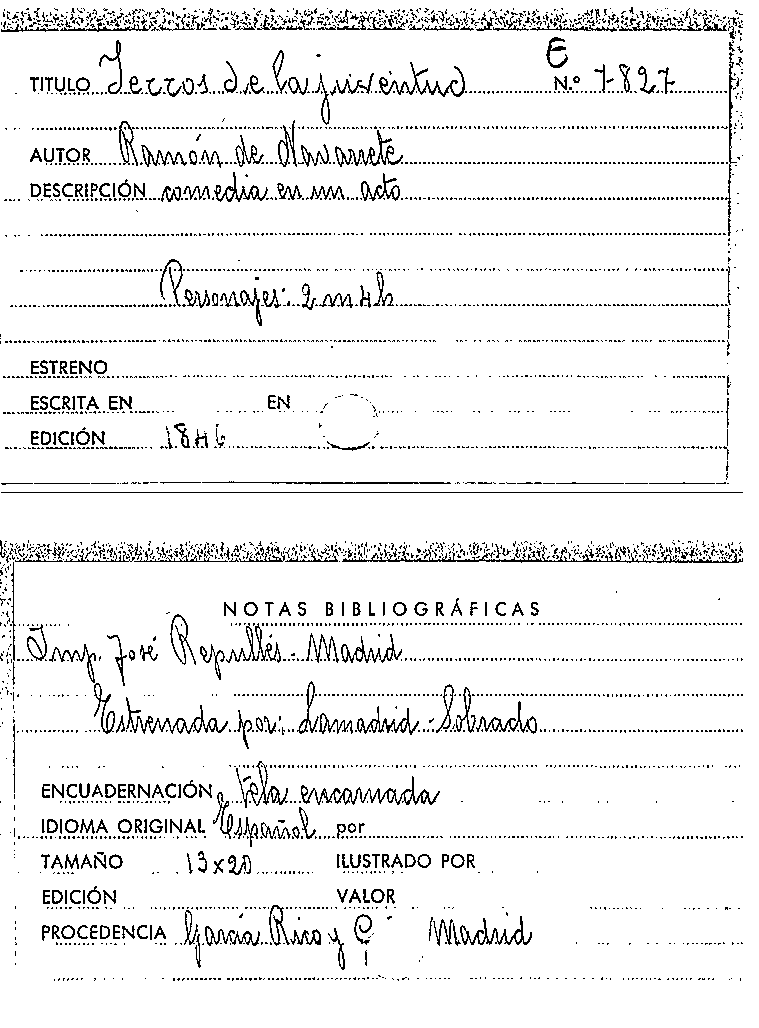 E
TITULO Yerros de la juventud N.º 7-827
AUTOR Ramón de Navarrete
DESCRIPCIÓN comedia en un acto
Personajes: 2 m 4 h
ESTRENO
ESCRITA EN EN
EDICIÓN 1846
NOTAS BIBLIOGRÁFICAS
Imp. José Repullés - Madrid
Estrenada por: Lamadrid - Sobrado
ENCUADERNACIÓN Tela encarnada
IDIOMA ORIGINAL Español por
TAMAÑO 13x20 ILUSTRADO POR
EDICIÓN VALOR
PROCEDENCIA García Rico y Cª Madrid